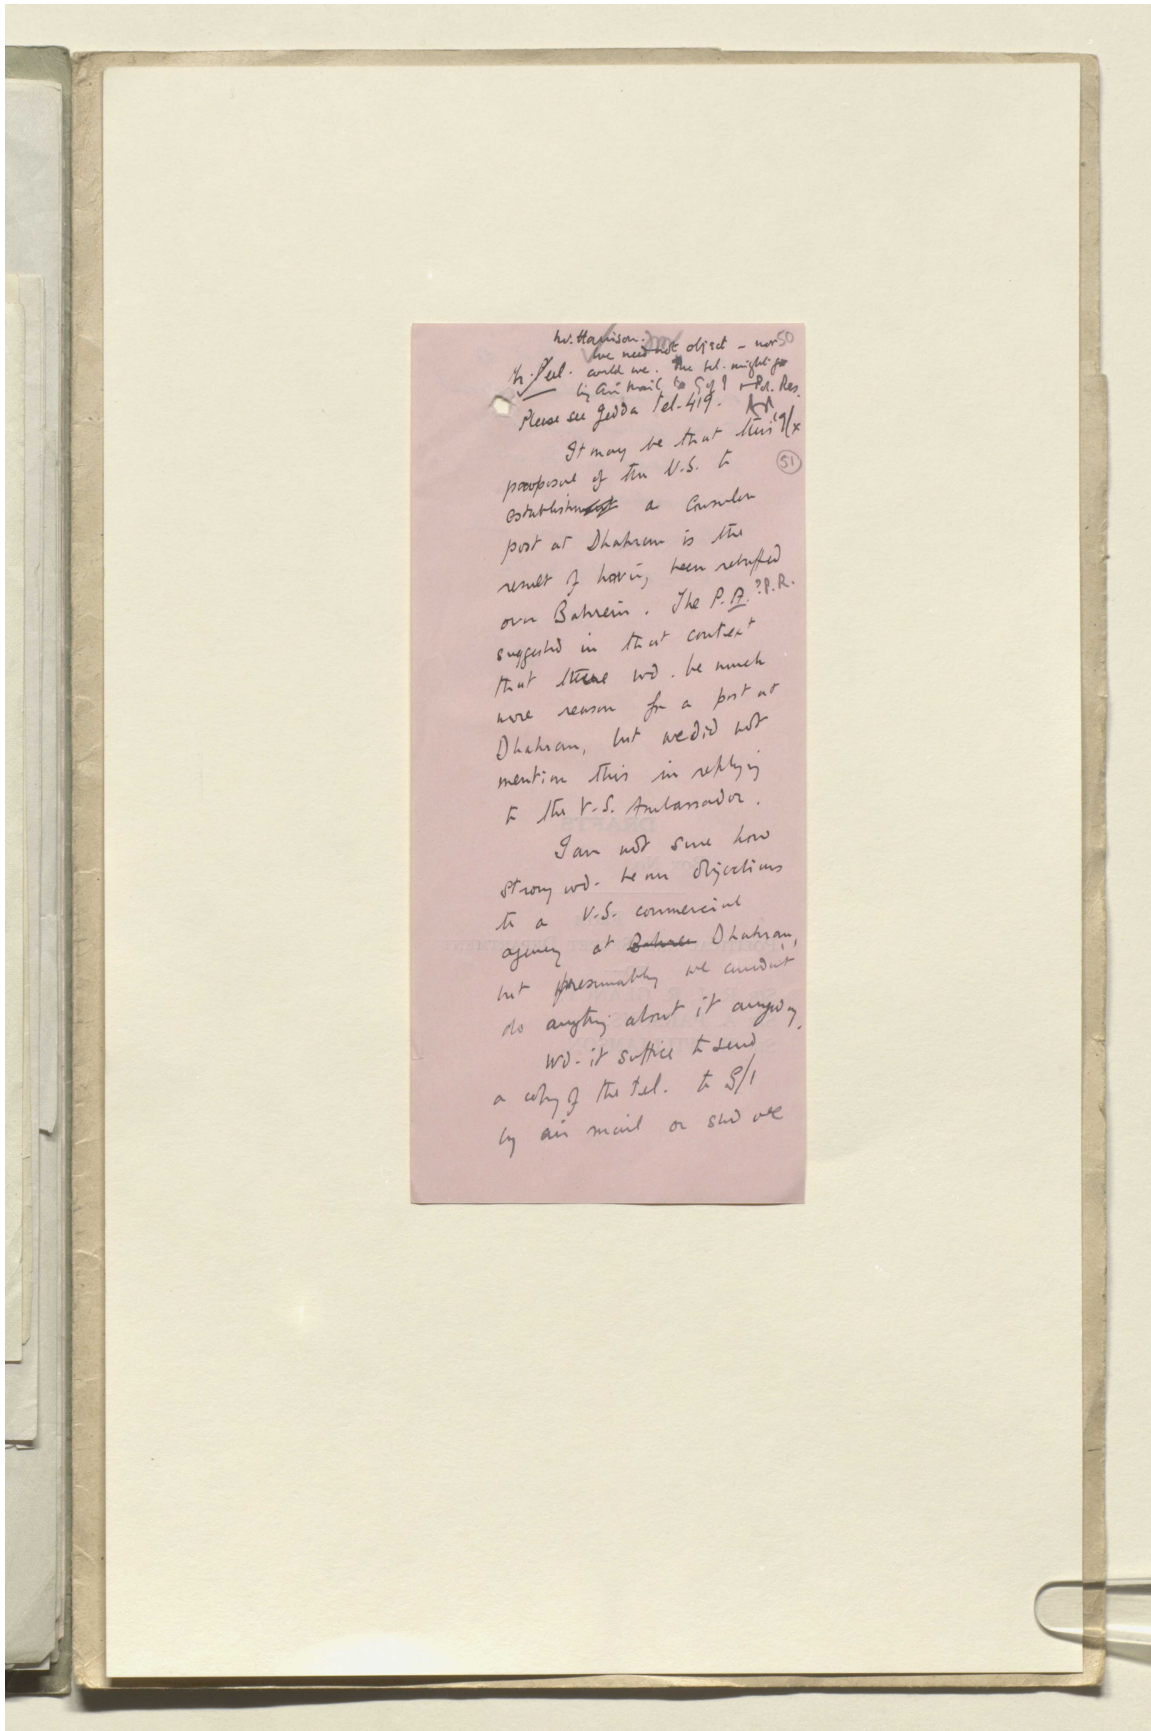 Mr. Harrison.
we need not object – nor 50
Mr. Peel. could we. The tel. might go
by air mail to G of I + Pol. Res.
Please see Jedda tel. 419.
It may be that this 9/x
51
proposal of the U.S. to
establishment a Consular
post at Dhahran is the
result of having been rebuffed
over Bahrein. The P.A. ?P.R.
suggested in that context
that there wd. be much
more reason for a post at
Dhahran, but we did not
mention this in replying
to the U.S. Ambassador.
I am not sure how
strong wd. be our objections
to a U.S. commercial
agency at Bahrein Dhahran,
but presumably we couldn't
do anything about it anyway.
Wd. it suffice to send
a copy of the tel. to G/I
by air mail or shd we